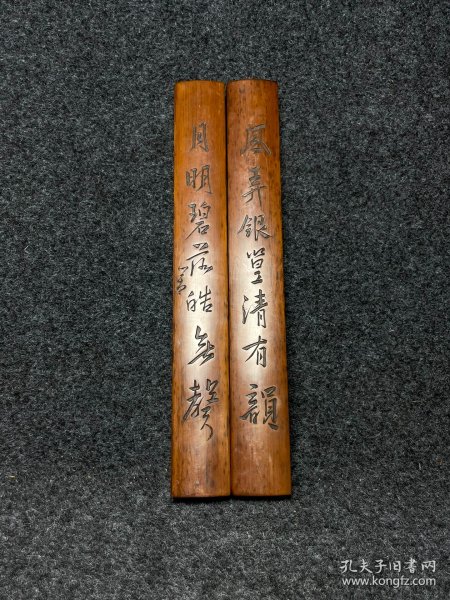 風弄銀篁清有韻
月明碧落皓無聲
孔夫子旧书网
www.kongfz.com